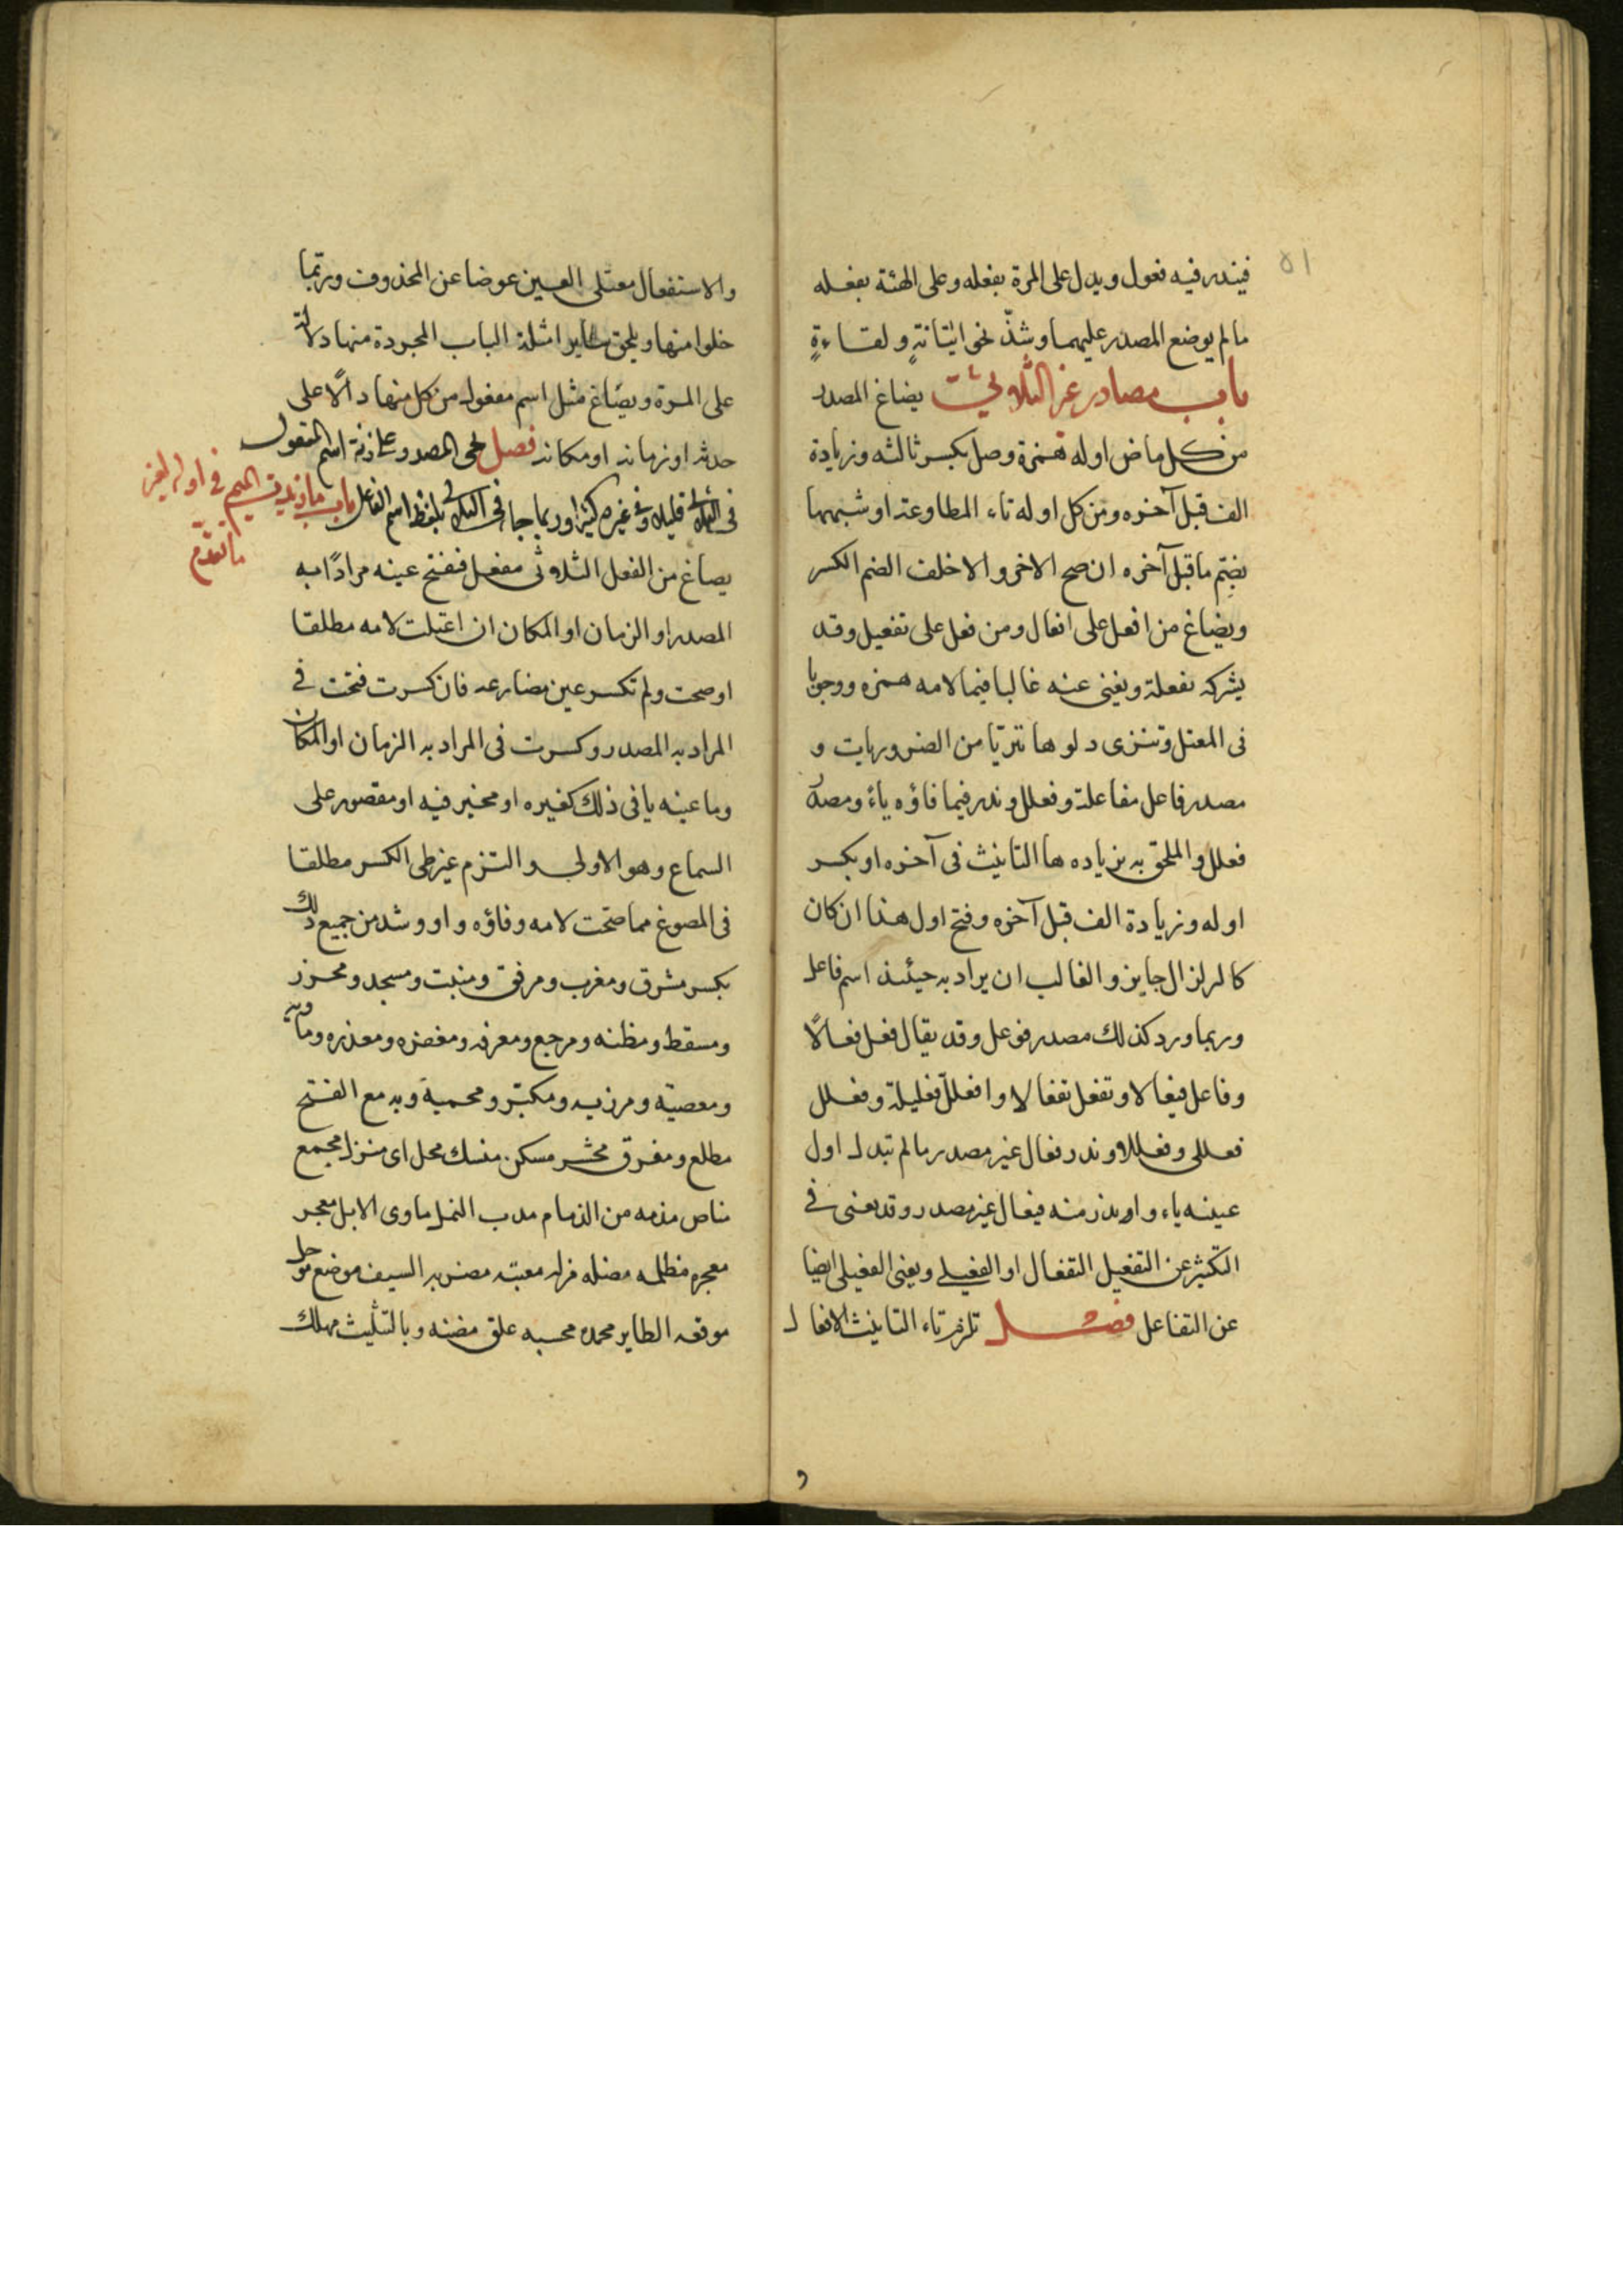 ٥١
فيندر فيه فعول ويدل على المرة بفعله وعلى الهئة بفعله
ما لم يوضع المصدر عليهما وشذّ نحو اتيانةٍ ولقاءةٍ
باب مصادر غير الثلاثي يصاغ المصدر
من كل ماض اوله همزة وصل بكسر ثالثه وزيادة
الف قبل آخره ومن كل اوله تاء المطاوعة او شبهها
بضم ما قبل آخره ان صح الاخر والا خلف الضم الكسر
ويصاغ من افعل على افعال ومن فعل على تفعيل وقد
يشركه تفعلة ويغنى عنه غالبا فيما لامه همزه ووجوبا
فى المعتل وتنزى دلوها تنزيّا من الضرورات و
مصدر فاعل مفاعلة وفعلل وندر فيما فاؤه ياءٌ ومصدر
فعلل والملحق به بزياده ها التانيث فى آخره او بكسر
اوله وزيادة الف قبل آخره وفتح اول هذا ان كان
كالزلزال جايز والغالب ان يراد به حينئذ اسم فاعل
وربما ورد كذلك مصدر فوعل وقد يقال فعل فعالًا
وفاعل فيعالا وتفعل تفعالا وافعلل فعليلة وفعلل
فعللى وفعللا وندر فعال غير مصدر ما لم تبدل اول
عينه ياء واوندر منه فيعال غير مصدر وقد يغنى فى
التكثير عن التفعيل التفعال او الفعيلى ويغنى الفعيلى ايضا
عن التفاعل فصل تلزم تاء التانيث الافعال
و
والاستفعال معتلى العين عوضا عن المحذوف وربّما
خلوا منها ويلحق ساير امثلة الباب المجردة منها دلالة
على المرة ويصاغ مثل اسم مفعول من كل منها دالًا على
حدثه او زمانه او مكانه فصل يجى المصدر على زنة اسم المفعول
فى الثلاثى قليلا وفى غيره كثيرا وربما جاء فى الثلاثى بلفظ اسم الفاعل باب ما زيدت الميم فى اوله لغير
ما تقدّم
يصاغ من الفعل الثلاثى مفعل فتفتح عينه مرادًا به
المصدر او الزمان او المكان ان اعتلت لامه مطلقا
او صحت ولم تكسر عين مضارعه فان كسرت فتحت فى
المراد به المصدر وكسرت فى المراد به الزمان او المكان
وما عينه يا فى ذلك كغيره او مخير فيه او مقصور على
السماع وهو الاولى والتزم غير طى الكسر مطلقا
فى المصوغ مما صحت لامه وفاؤه واو وشذ من جميع ذلك
بكسر مشرق ومغرب ومرفق ومنبت ومسجد ومجزر
ومسقط ومظنه ومرجع ومعرفه ومغفره ومعذره وماويه
ومعصية ومرزيه ومكبر ومحمية وبه مع الفتح
مطلع ومفرق محشر مسكن منسك محل اى منزل مجمع
مناص مذمه من الذمام مدب النمل ماوى الابل معجز
معجزه مظلمه مضله مزله معتبه مضربه السيف موضع موحل
موقعه الطاير محمده محسبه علق مضنه وبالتثليث مهلك